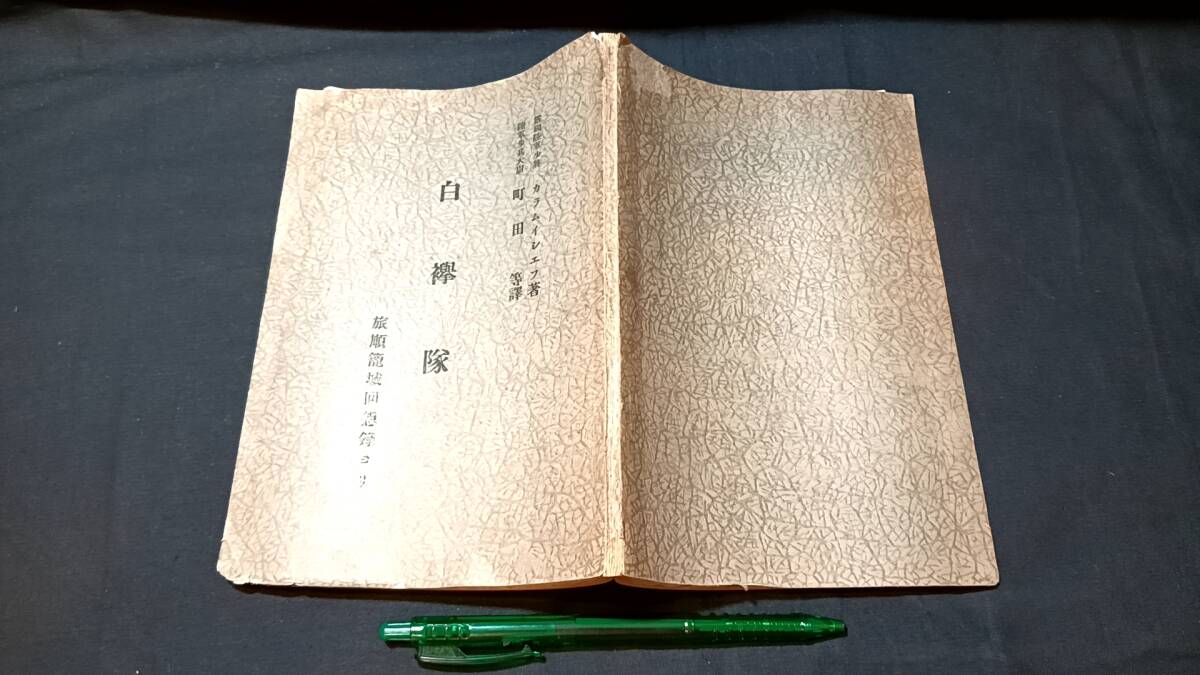 舊露陸軍少將 カラムイシエフ著
陸軍歩兵大尉 町田 等譯
白襷隊
旅順籠城回想錄ヨリ